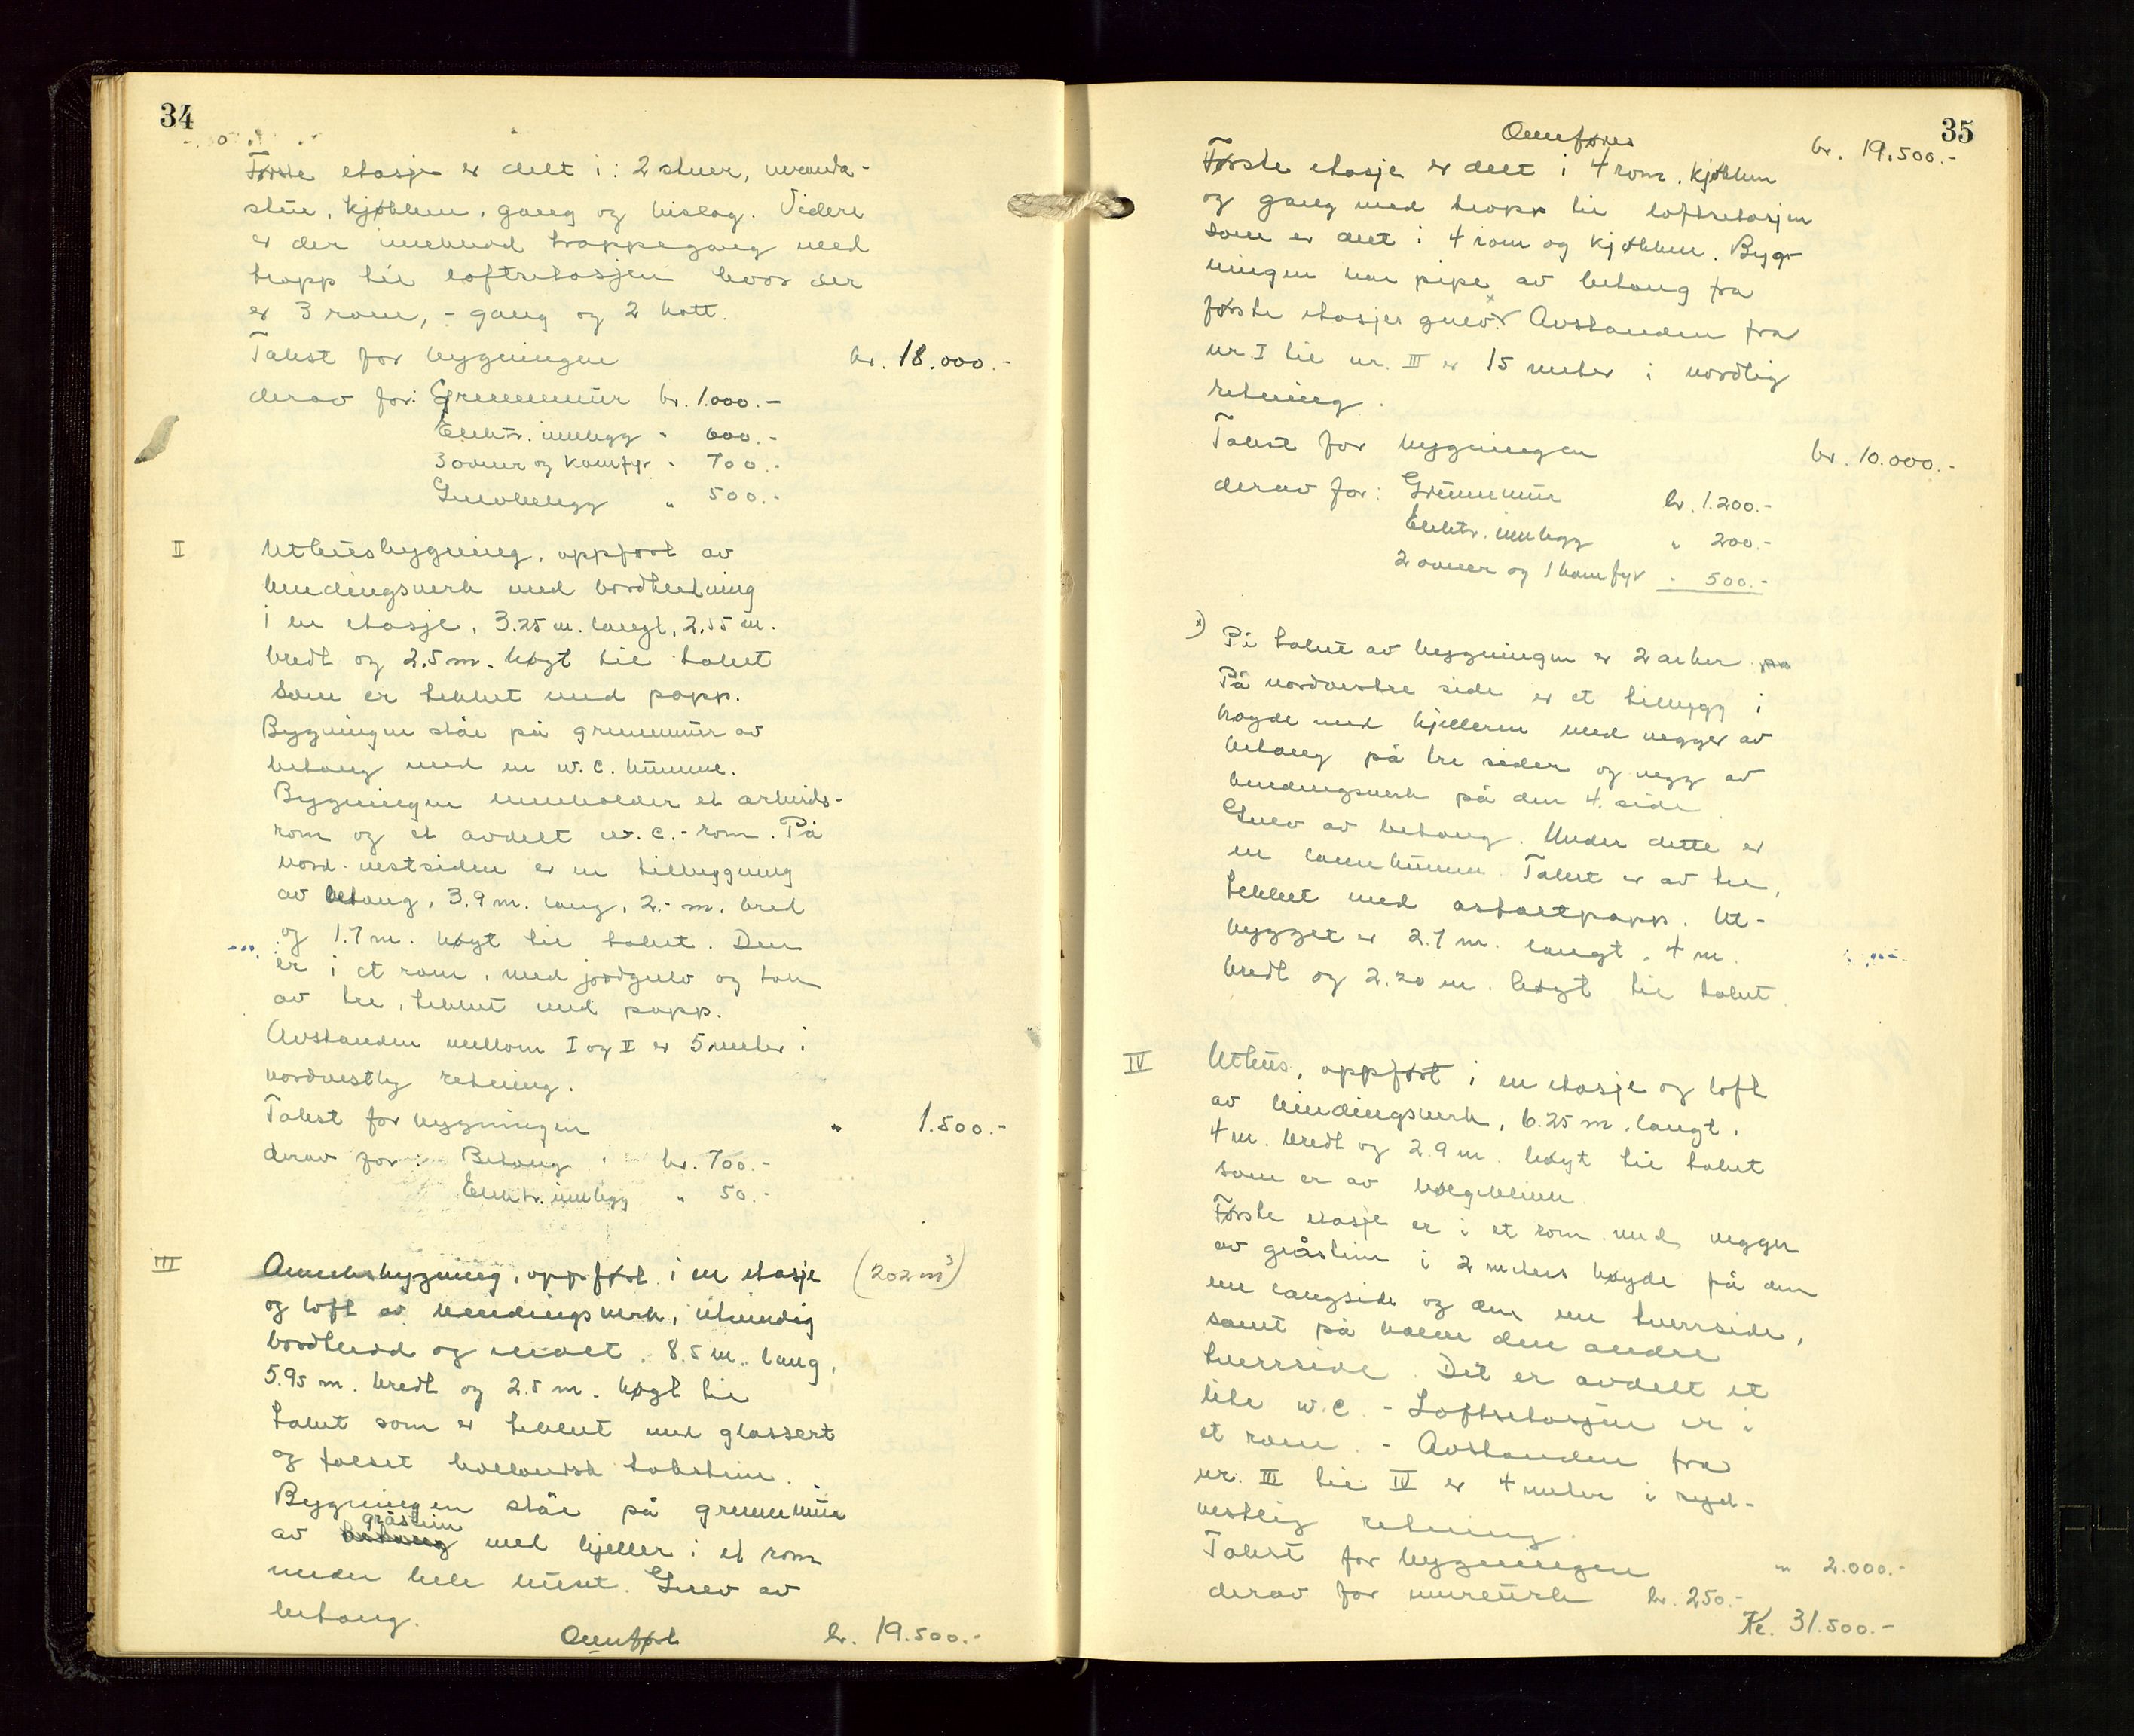 34
Første etasje er delt i: 2 stuer, veranda-
stue, kjøkken, gang og bislag. Videre
er der innebod trappegang med
trapp til loftsetasjen hvor der
er 3 rom, - gang og 2 kott.
Takst for bygningen kr. 18.000.-
derav for: Grunnmur kr. 1.000.-
Elektr. innlegg " 600.-
3 ovner og komfyr " 700.-
Gulvbelegg " 500.-
II Uthusbygning, oppført av
bindingsverk med bordkledning
i en etasje, 3.25 m. langt, 2,55 m.
bredt og 2,5 m. høgt til taket
som er tekket med papp.
Bygningen står på grunnmur av
betong med en w.c. kumme.
Bygningen inneholder et arbeids-
rom og et avdelt w.c.-rom. På
nord-vestsiden er en tilbygging
av betong, 3.9 m. lang, 2.- m. bred
og 1.7 m. høgt til taket. Den
er i et rom, med jordgulv og tak
av tre, tekket med papp.
Avstanden mellom I og II er 5 meter i
nordvestlig retning.
Takst for bygningen " 1.500.-
derav for: Betong kr. 700.-
Elektr. innlegg " 50.-
III Anneksbygning, oppført i en etasje (202 m³)
og loft av bindingsverk, utvendig
bordkledd og malt. 8.5 m. lang,
5.95 m. bredt og 2.5 m. høgt til
taket som er tekket med glassert
og falset hollandsk takstein.
Bygningen står på grunnmur
gråstein
av betong med kjeller i et rom
under hele huset. Gulv av
betong.
Omført kr. 19.500.-
35
Omføres kr. 19.500.-
Første etasje er delt i 4 rom, kjøkken
og gang med trapp til loftsetasjen
som er delt i 4 rom og kjøkken. Byg-
ningen har pipe av betong fra
første etasjes gulv. x Avstanden fra
nr I til nr. III er 15 meter i nordlig
retning.
Takst for bygningen kr. 10.000.-
derav for: Grunnmur kr. 1.200.-
Elektr. innlegg " 200.-
2 ovner og 1 komfyr " 500.-
x) På taket av bygningen er 2 arker på
På nordvestre side er et tilbygg i
høyde med kjelleren med vegger av
betong på tre sider og vegg av
bindingsverk på den 4. side
Gulv av betong. Under dette er
en landkumme. Taket er av tre,
tekket med asfaltpapp. Ut-
bygget er 2.7 m. langt, 4 m.
bredt og 2.20 m. høgt til taket.
IV Uthus, oppført i en etasje og loft
av bindingsverk, 6.25 m. langt,
4 m. bredt og 2.9 m. høgt til taket
som er av bølgeblikk
Første etasje er i et rom med vegger
av gråstein i 2 meters høyde på den
ene langside og den ene tverrside,
samt på halve den andre
tverrside. Det er avdelt et
lite w.c. - Loftsetasjen er i
et rom. - Avstanden fra
nr. III til IV er 4 meter i syd-
vestlig retning.
Takst for bygningen " 2.000.-
derav for murverk kr. 250.-
Kr. 31.500.-